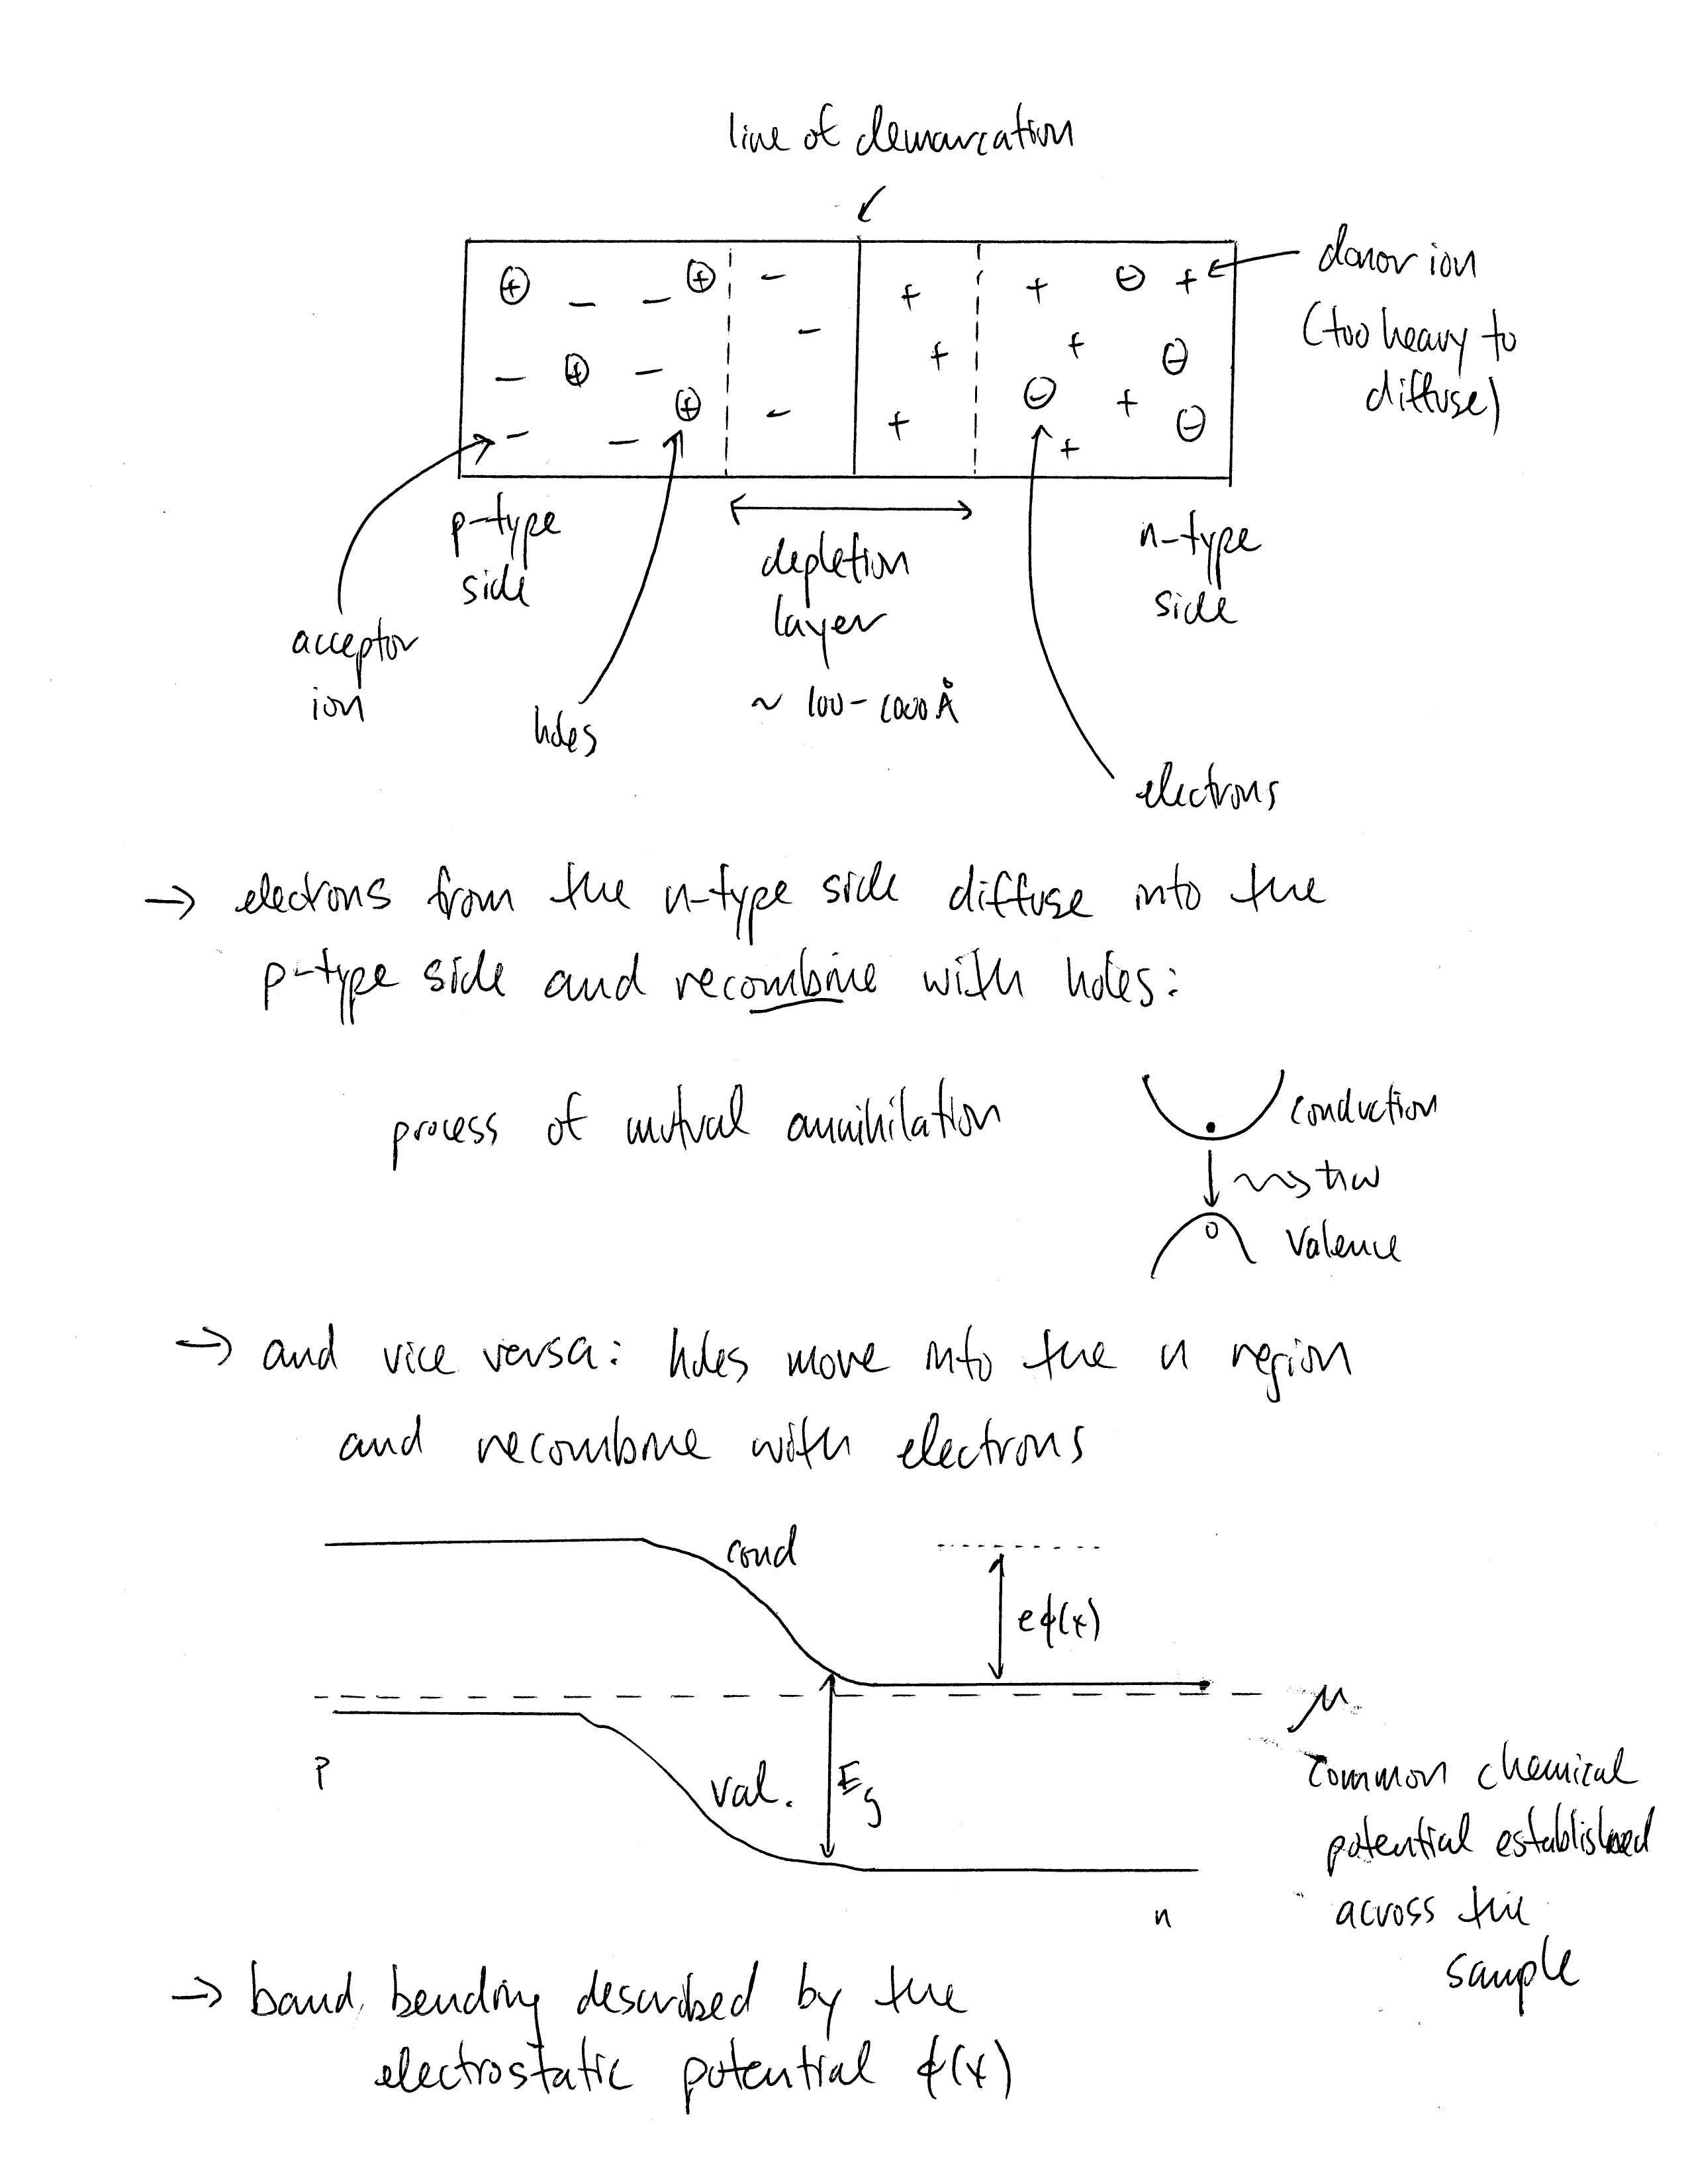 line of demarcation
donor ion
(too heavy to
diffuse)
p-type
side
depletion
layer
~ 100-1000Å
n-type
side
acceptor
ion
holes
electrons
→ electrons from the n-type side diffuse into the
p-type side and recombine with holes:
process of mutual annihilation
conduction
ħω
valence
→ and vice versa: holes move into the n region
and recombine with electrons
cond
eϕ(x)
μ
P
val.
Eg
common chemical
potential established
across the
sample
n
→ band bending described by the
electrostatic potential ϕ(x)